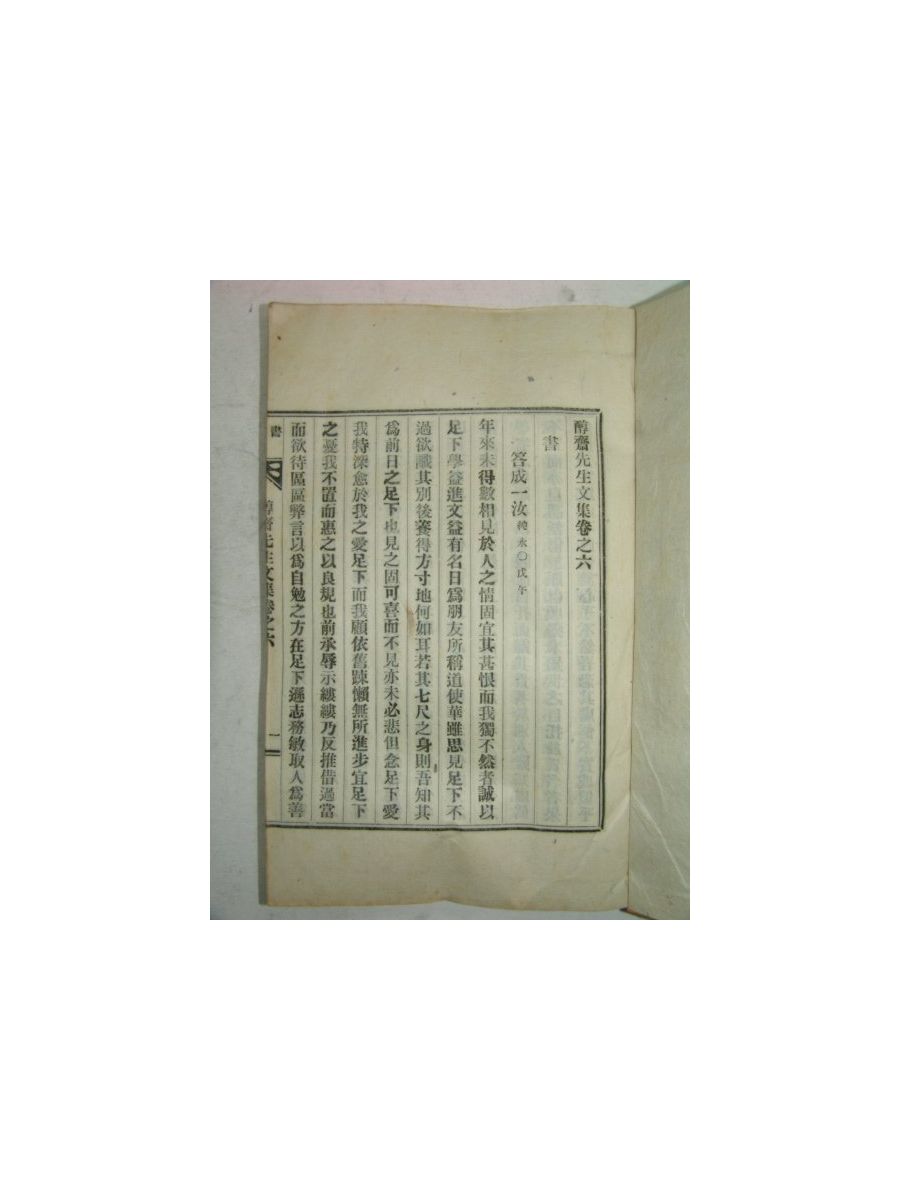 醇齋先生文集卷之六
書
答成一汝 純永○戊午
年來未得數相見於人之情固宜其甚恨而我獨不然者誠以
足下學益進文益有名日爲朋友所稱道使華雖思見足下不
過欲識其別後養得方寸地何如耳若其七尺之身則吾知其
爲前日之足下也見之固可喜而不見亦未必悲但念足下愛
我特深愈於我之愛足下而我顧依舊踈懶無所進步宜足下
之憂我不置而惠之以良規也前承辱示縷縷乃反推借過當
而欲待區區弊言以爲自勉之方在足下遜志務敏取人爲善
書
醇齋先生文集卷之六
一